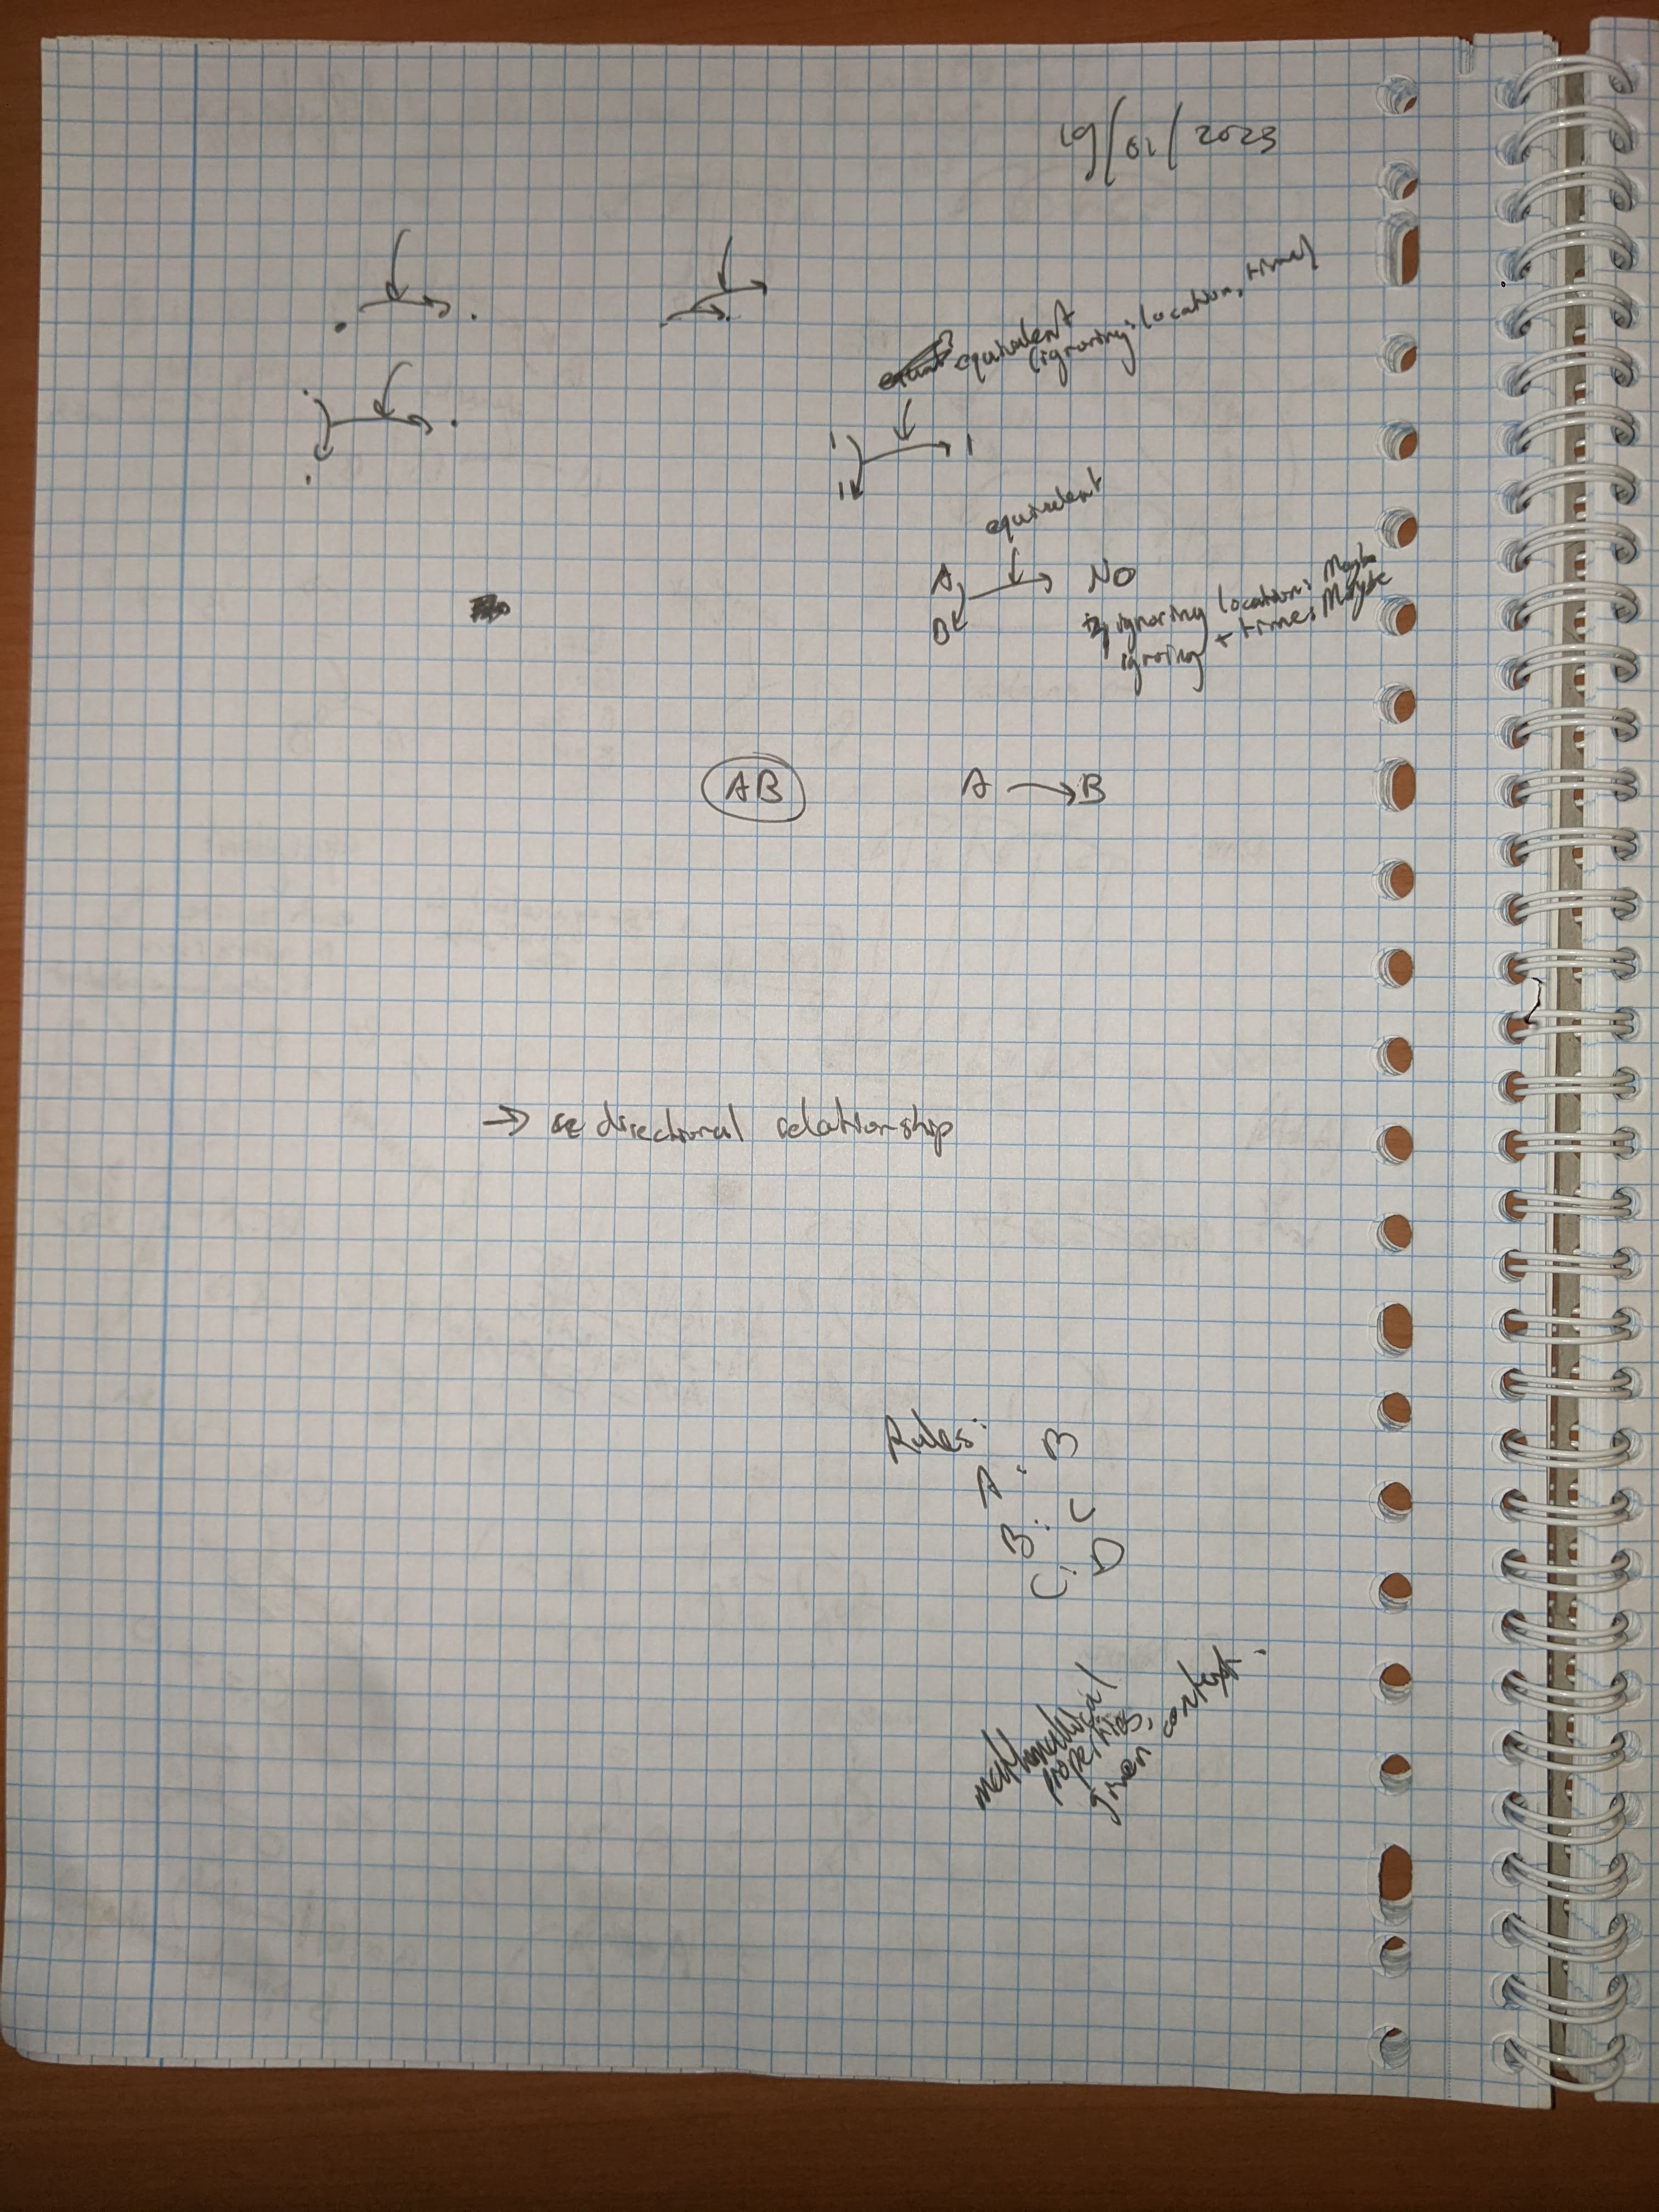 19/01/2023
equivalent
(ignoring: location, time)
1
1
1
equivalent
A
No
B
ignoring location: Maybe
ignoring + time: Maybe
AB
A → B
→ directional relationship
Rules:
A : B
B : C
C : D
mathematical
properties,
given context.